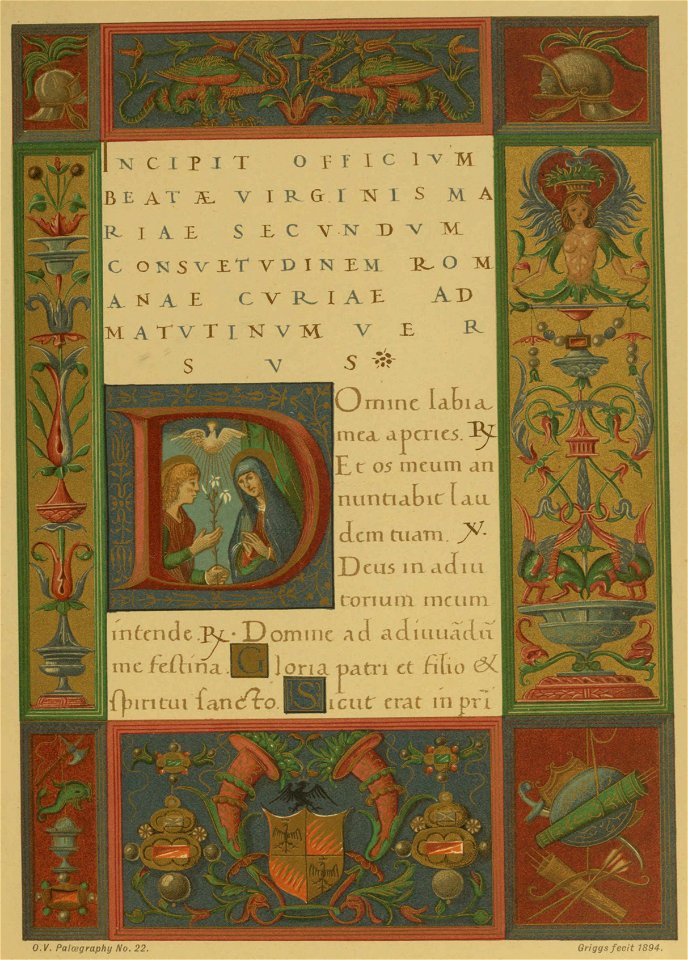 INCIPIT OFFICIVM
BEATÆ VIRGINIS MA
RIAE SECVNDVM
CONSVETVDINEM ROM
ANAE CVRIAE AD
MATVTINVM VER
SVS
Domine labia
mea aperies. ℟
Et os meum an
nuntiabit lau
dem tuam. ℣.
Deus in adiu
torium meum
intende. ℟. Domine ad adiuuādū
me festina. Gloria patri et filio &
spiritui sancto. Sicut erat in pri
G.V. Palæography No. 22.
Griggs fecit 1894.